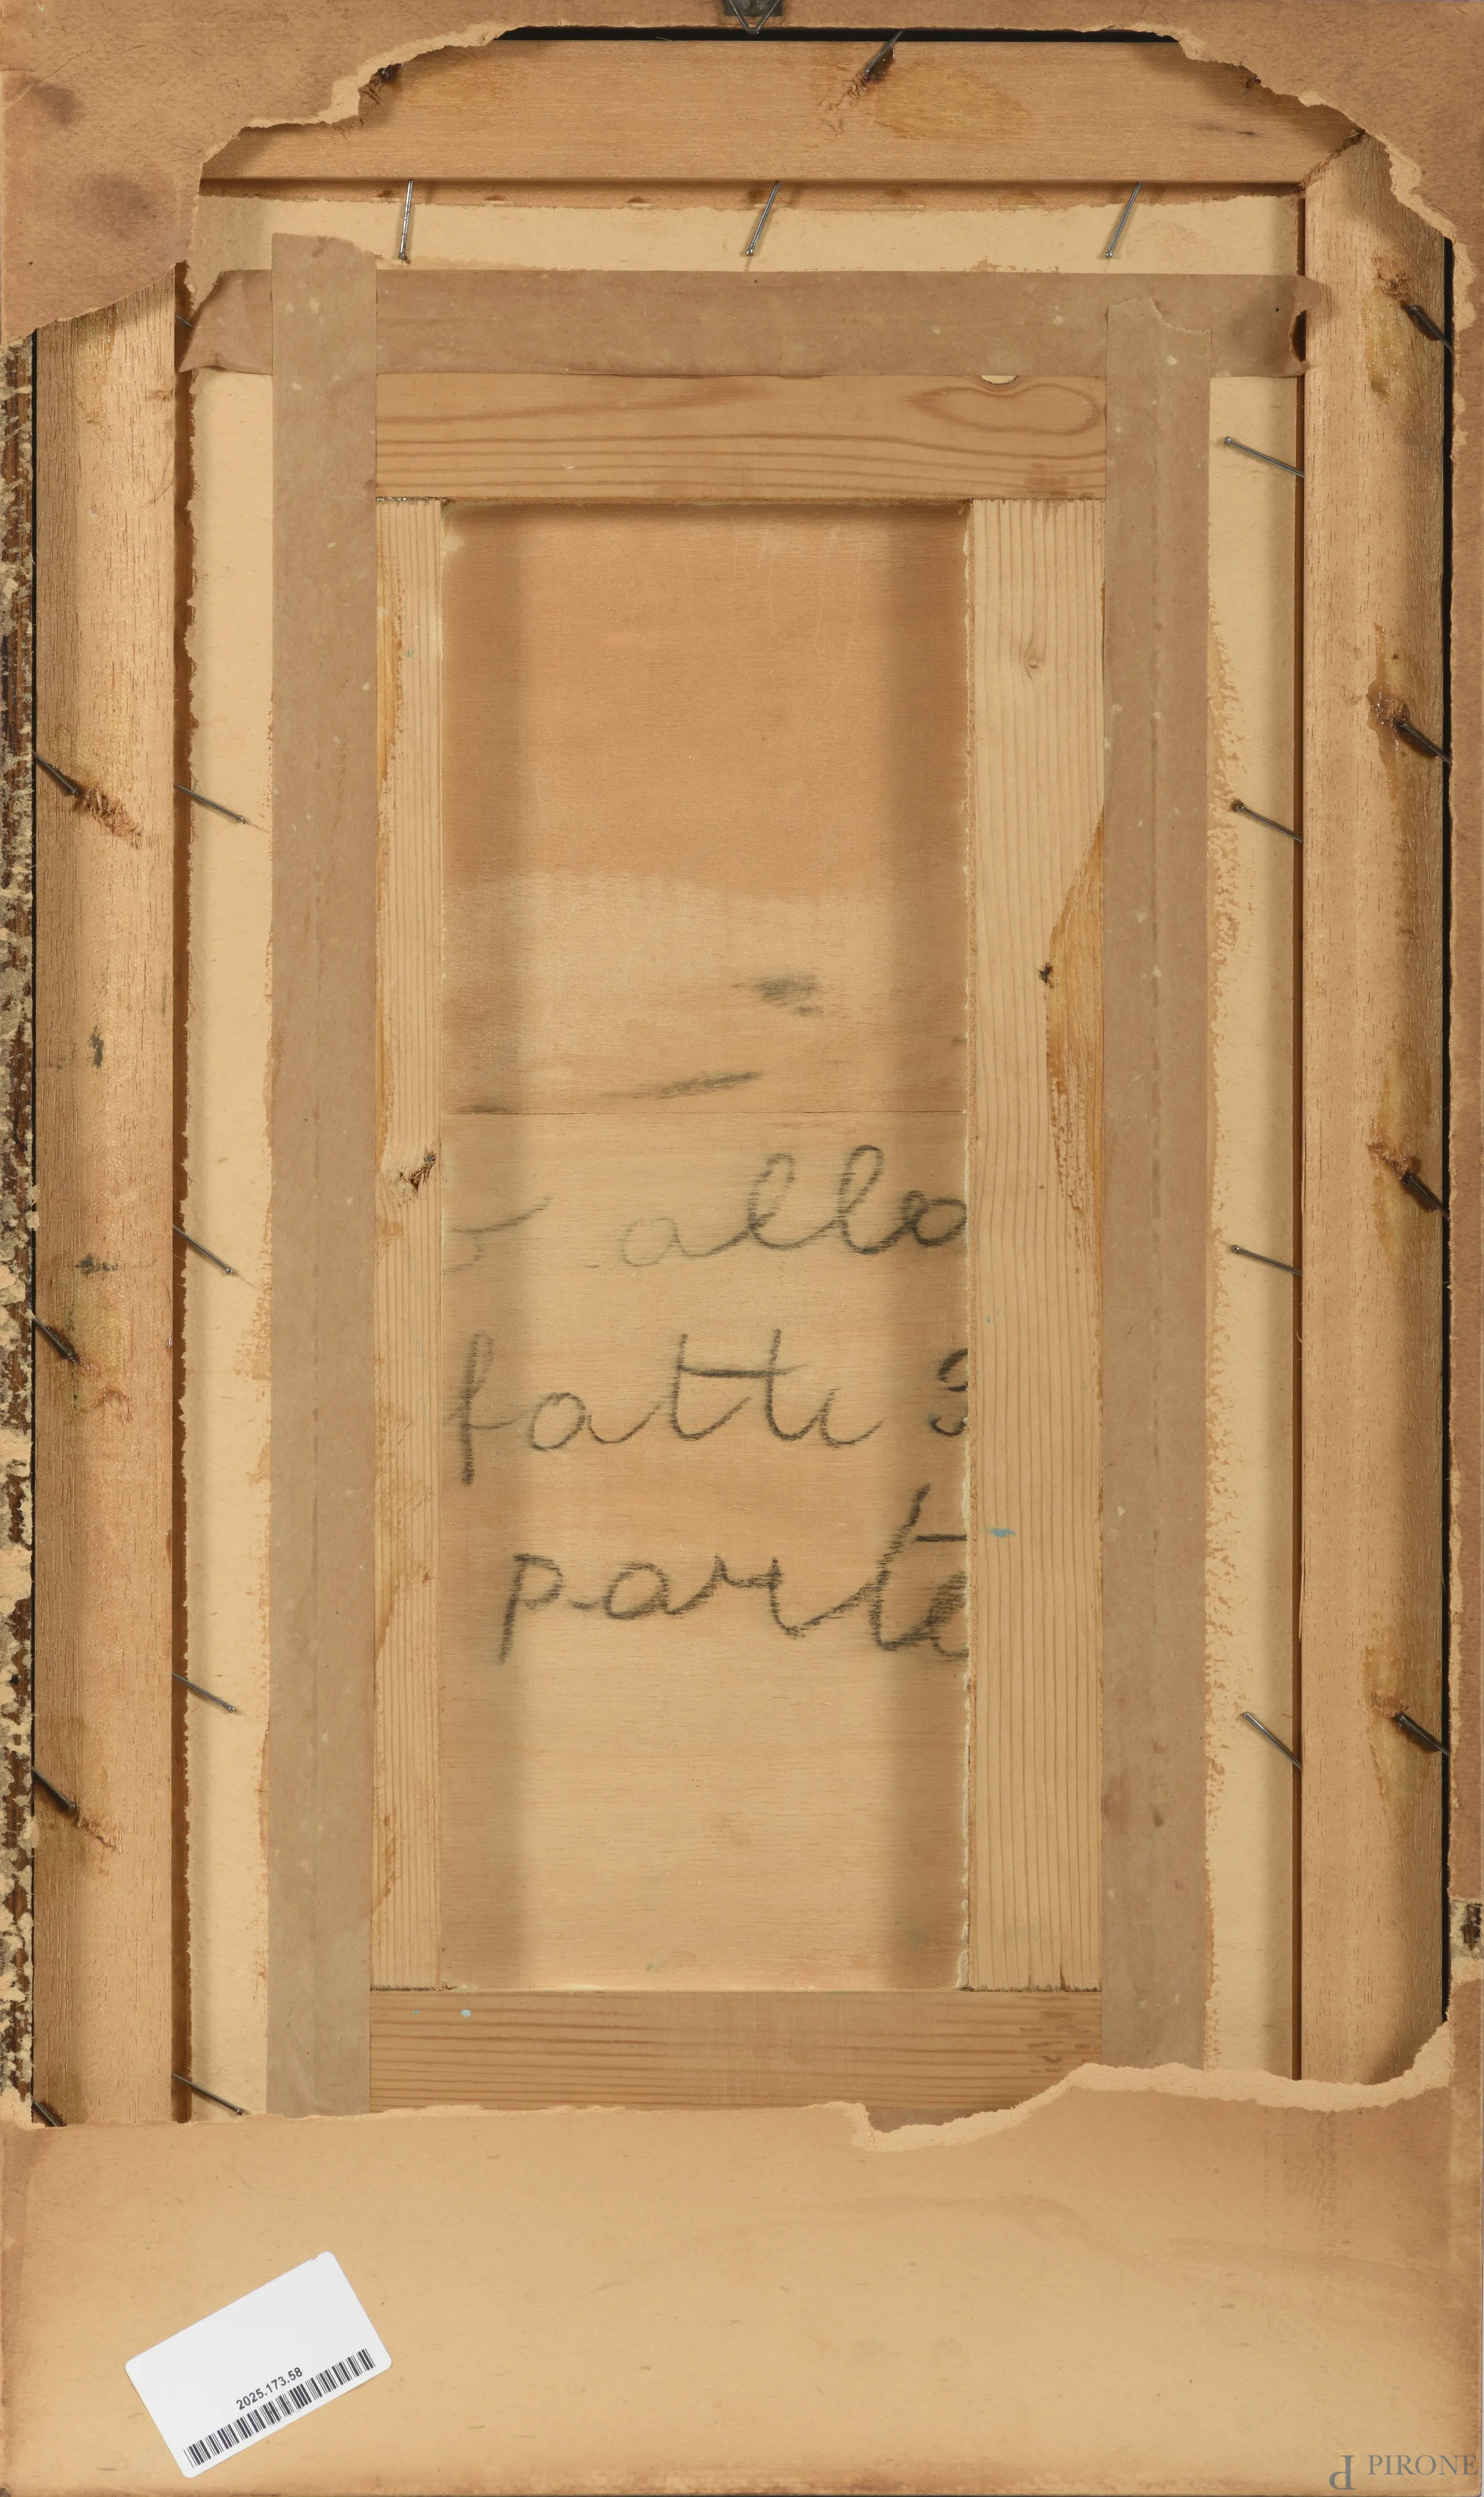 allo
fatti
parte
2025.173.58
PIRONE